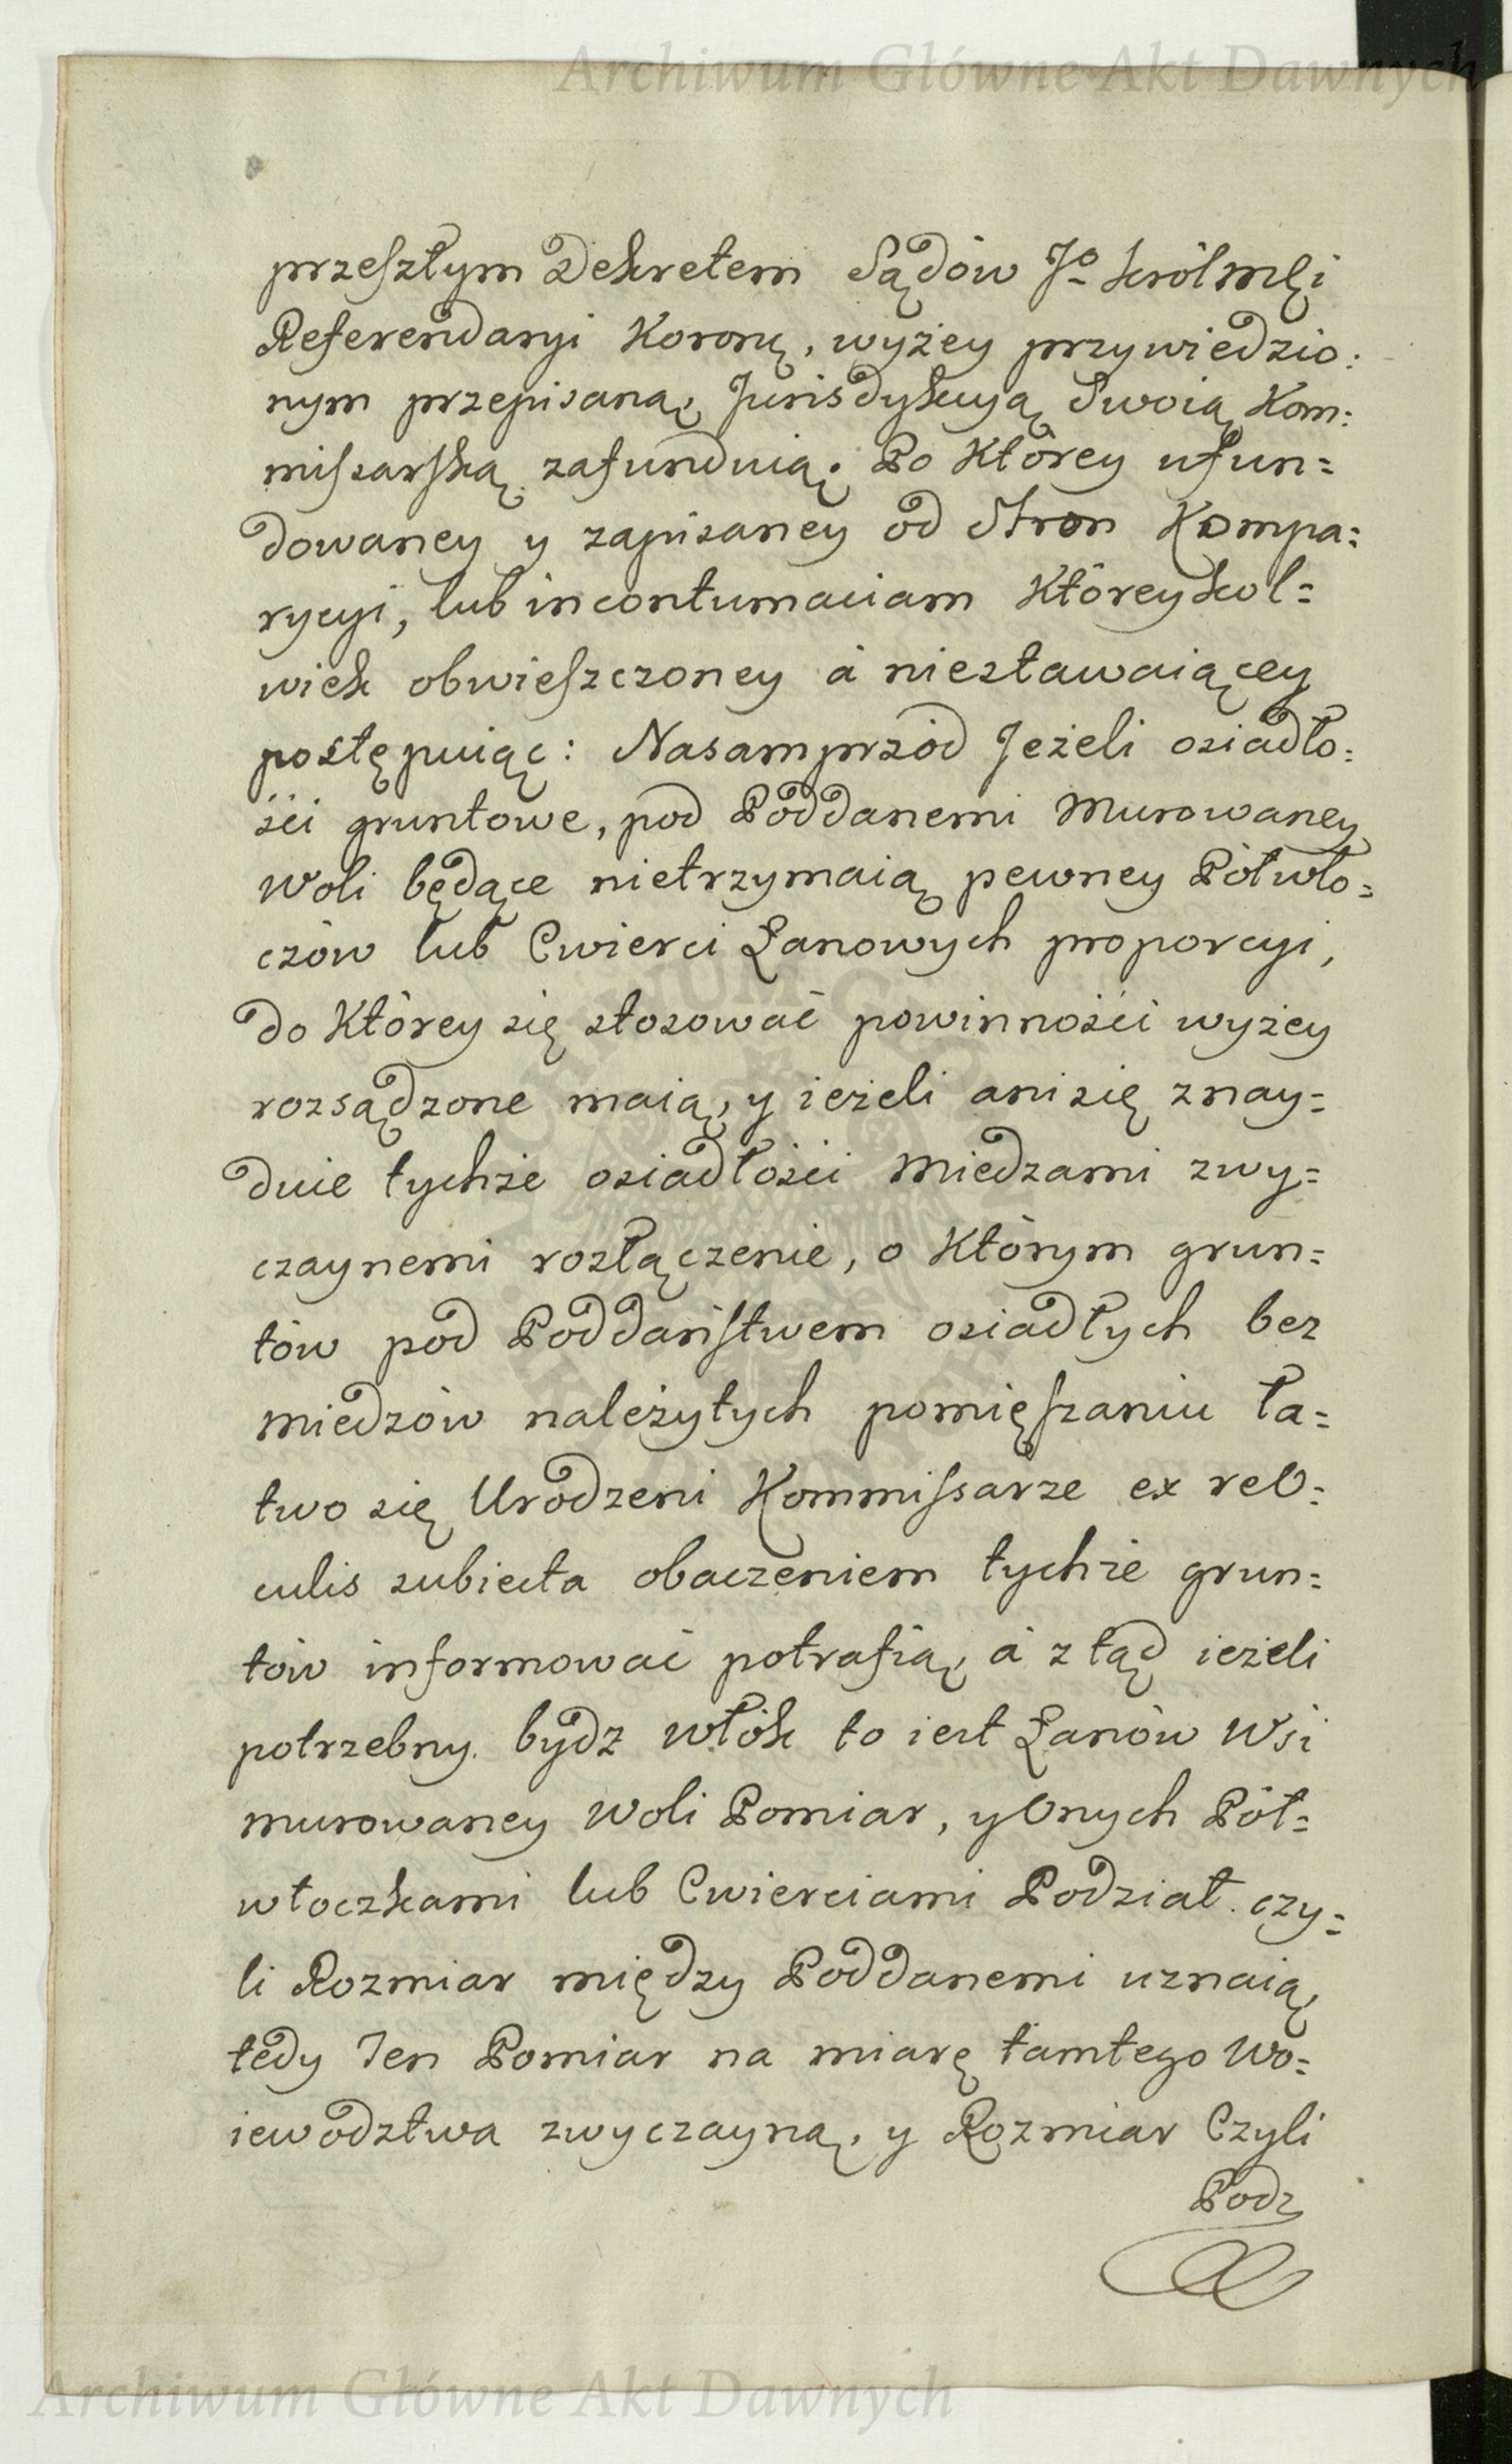 Archiwum Główne Akt Dawnych
przeszłym Dekretem Sądów Jº Królmęi
Referendaryi Koronę, wyżey przywiedzio:
nym przepisaną, Jurisdykcyą Swoią Kom:
missarską zafunduią. Po Którey ufun=
dowaney y zapisaney od Stron Kompa=
rycyi, lub in contumaciam Któreykol=
wiek obwieszczoney á niestawaiącey
postępuiąc: Nasamprzód Jeżeli osiadło=
ści gruntowe, pod Poddanemi Murowaney
Woli będące nietrzymaią pewney Półwło=
czów lub Cwierci Łanowych proporcyi,
do Którey się stosować powinności wyżey
rozsądzone maią, y ieżeli ani się znay=
duie tychże osiadłości Miedzami zwy=
czaynemi rozłączenie, o Którym grun=
tów pod Poddaństwem osiadłych bez
miedzów należytych pomięszaniu ła=
two się Urodzeni Kommissarze ex reO:
culis subiecta obaczeniem tychże grun=
tów informować potrafią, á ztąd ieżeli
potrzebny bydz Włók to iest Łanów Wsi
murowaney Woli Pomiar, y Onych Pół=
włoczkami lub Cwierciami Podział czy=
li Rozmiar między Poddanemi uznaią,
tedy Ten Pomiar na miarę tamtego Wo=
iewodztwa zwyczayną, y Rozmiar Czyli
Podz
Archiwum Główne Akt Dawnych